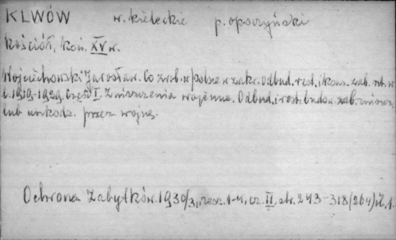 KLWÓW w. kieleckie p. opoczyński
Kościół, kon. XV w.
Wojciechowski Jarosław. Co zrob. w Polsce w zakr. odbud. rest. i kons. zab. szt. w
l. 1919-1929. Część I. Zniszczenia wojenne. Odbud. i rest. budow. zab. zniszcz.
lub uszkodz. przez wojnę.
Ochrona Zabytków. 1930/31, zesz. 1-4, cz. II, str. 243-318 (264) il. 1.